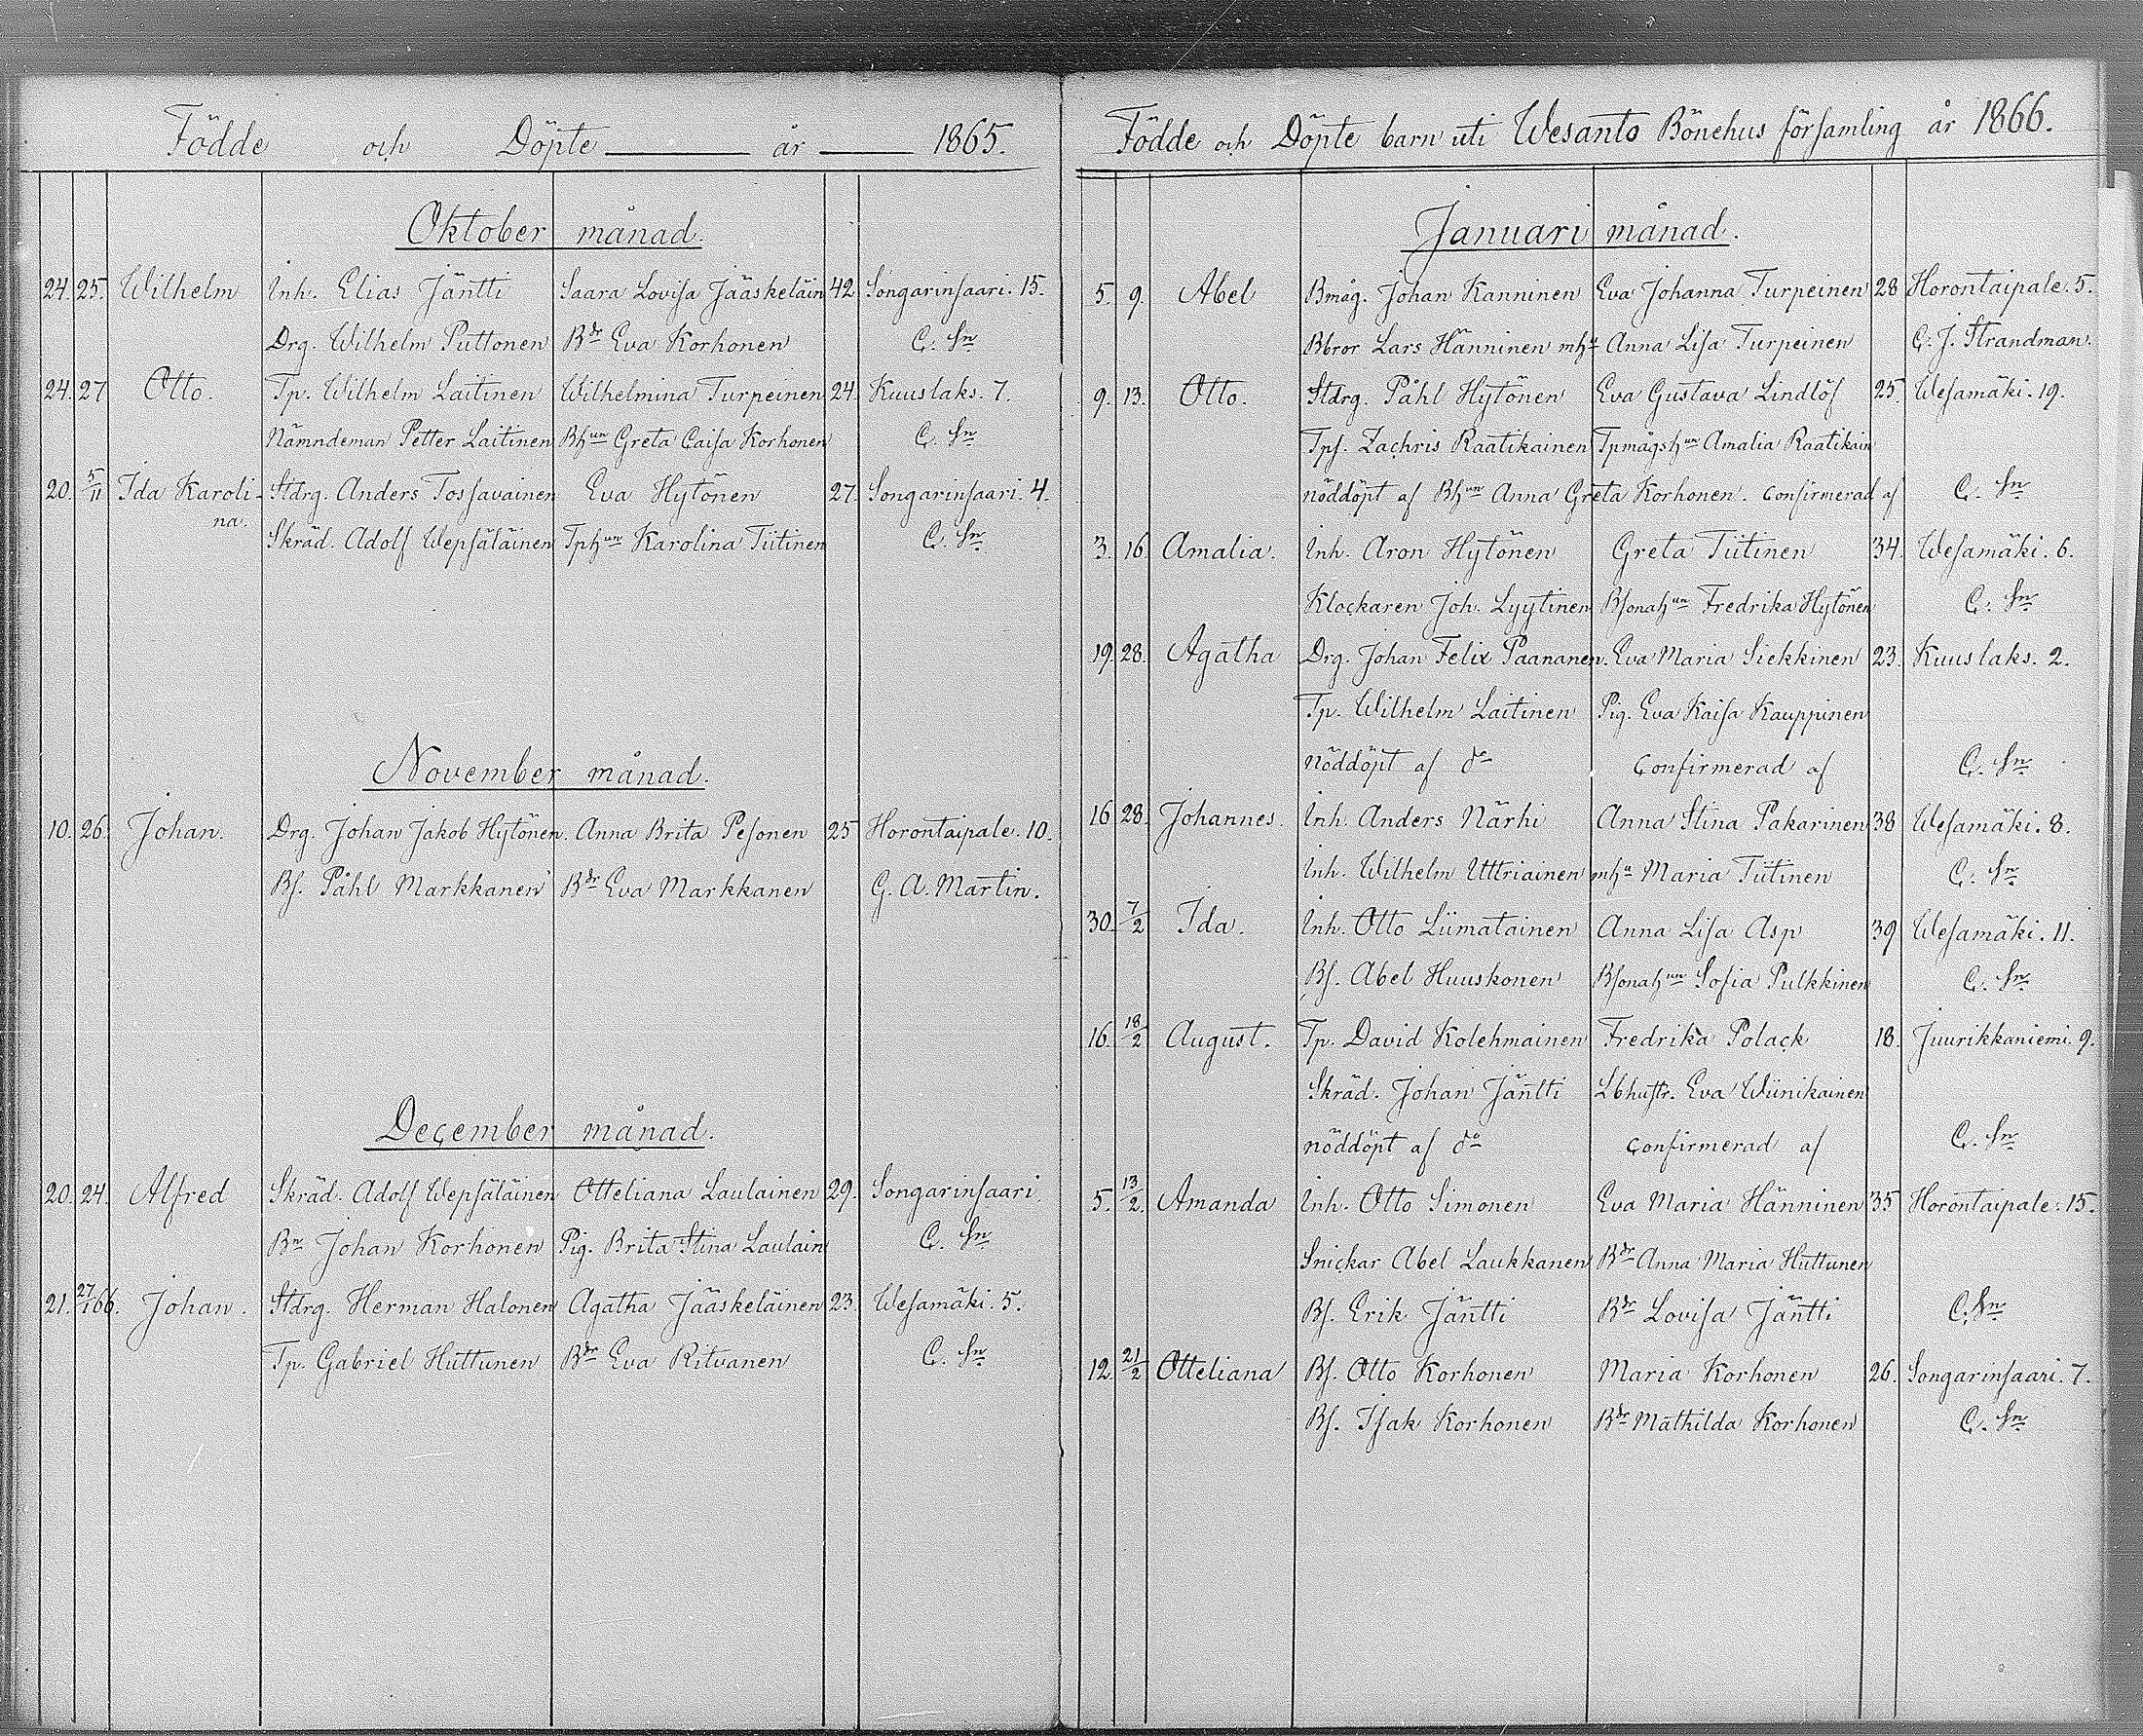 Födde och Döpte år 1865.
Oktober månad.
24. 25. Wilhelm Inh. Elias Jäntti Saara Lovisa Jääskeläin 42 Songarinsaari. 15.
Drg. Wilhelm Puttonen Bdr Eva Korhonen C. Sn
24. 27 Otto. Tp. Wilhelm Laitinen Wilhelmina Turpeinen 24. Kuuslaks. 7.
Nämndeman Petter Laitinen Bhun Greta Caisa Korhonen C. Sn
20. 5/11 Ida Karoli- Stdrg. Anders Tossavainen Eva Hytönen 27. Songarinsaari. 4.
na. Skräd. Adolf Wepsäläinen Tphun Karolina Tiitinen C. Sn
November månad.
10. 26. Johan. Drg. Johan Jakob Hytönen. Anna Brita Pesonen 25 Horontaipale. 10.
Bs. Påhl Markkanen Bdr Eva Markkanen G. A. Martin.
December månad.
20. 24. Alfred Skräd. Adolf Wepsäläinen Otteliana Laulainen 29. Songarinsaari.
Bn Johan Korhonen Pig. Brita Stina Laulain C. Sn
21. 27/1 66. Johan. Stdrg. Herman Halonen Agatha Jääskeläinen 23. Wesamäki. 5.
Tp. Gabriel Huttunen Bdr Eva Ritvanen C. Sn
Födde och Döpte barn uti Wesanto Bönehus församling år 1866.
Januari månad.
5. 9. Abel Bmåg. Johan Kanninen Eva Johanna Turpeinen 28 Horontaipale. 5.
Bbror Lars Hänninen mhu Anna Lisa Turpeinen C. J. Strandman.
9. 13. Otto. Stdrg. Påhl Hytönen Eva Gustava Lindlöf 25. Wesamäki. 19.
Tps. Zachris Raatikainen Tpmågshun Amalia Raatikain
nöddöpt af Bhun Anna Greta Korhonen. confirmerad af C. Sn
3. 16. Amalia. Inh. Aron Hytönen Greta Tiitinen 34. Wesamäki. 6.
Klockaren Joh. Lyytinen Bsonahun Fredrika Hytönen C. Sn
19. 28. Agatha Drg. Johan Felix Paananen. Eva Maria Siekkinen 23. Kuuslaks. 2.
Tp. Wilhelm Laitinen Pig. Eva Kaisa Kauppinen
nöddöpt af do confirmerad af C. Sn
16 28. Johannes. Inh. Anders Närhi Anna Stina Pakarinen 38 Wesamäki. 8.
Inh. Wilhelm Uttriainen mhu Maria Tiitinen C. Sn
30. 7/2 Ida. Inh. Otto Liimatainen Anna Lisa Asp 39 Wesamäki. 11.
Bs. Abel Huuskonen Bsonahun Sofia Pulkkinen C. Sn
16. 18/2 August. Tp. David Kolehmainen Fredrika Polack 18. Juurikkaniemi. 9.
Skräd. Johan Jäntti Lbhustr. Eva Wiinikainen
nöddöpt af do confirmerad af C. Sn
5. 13/2. Amanda Inh. Otto Simonen Eva Maria Hänninen 35 Horontaipale. 15.
Snickar Abel Laukkanen Bdr Anna Maria Huttunen
Bs. Erik Jäntti Bdr Lovisa Jäntti C. Sn
12. 21/2 Otteliana Bs. Otto Korhonen Maria Korhonen 26. Songarinsaari. 7.
Bs. Isak Korhonen Bdr Mathilda Korhonen C. Sn